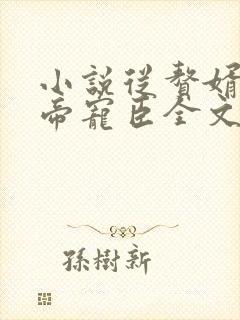 小說從贅婿
帝寵臣全文
孫樹新